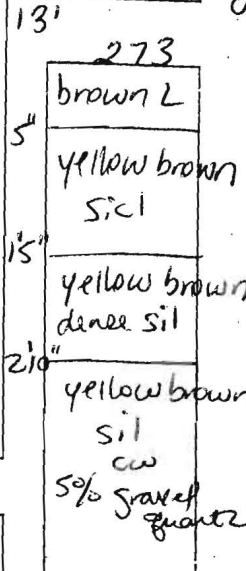 13'
273
brown L
5"
yellow brown
sicl
1'5"
yellow brown
dense sil
2'10"
yellow brown
sil
cw
5% gravel
quartz